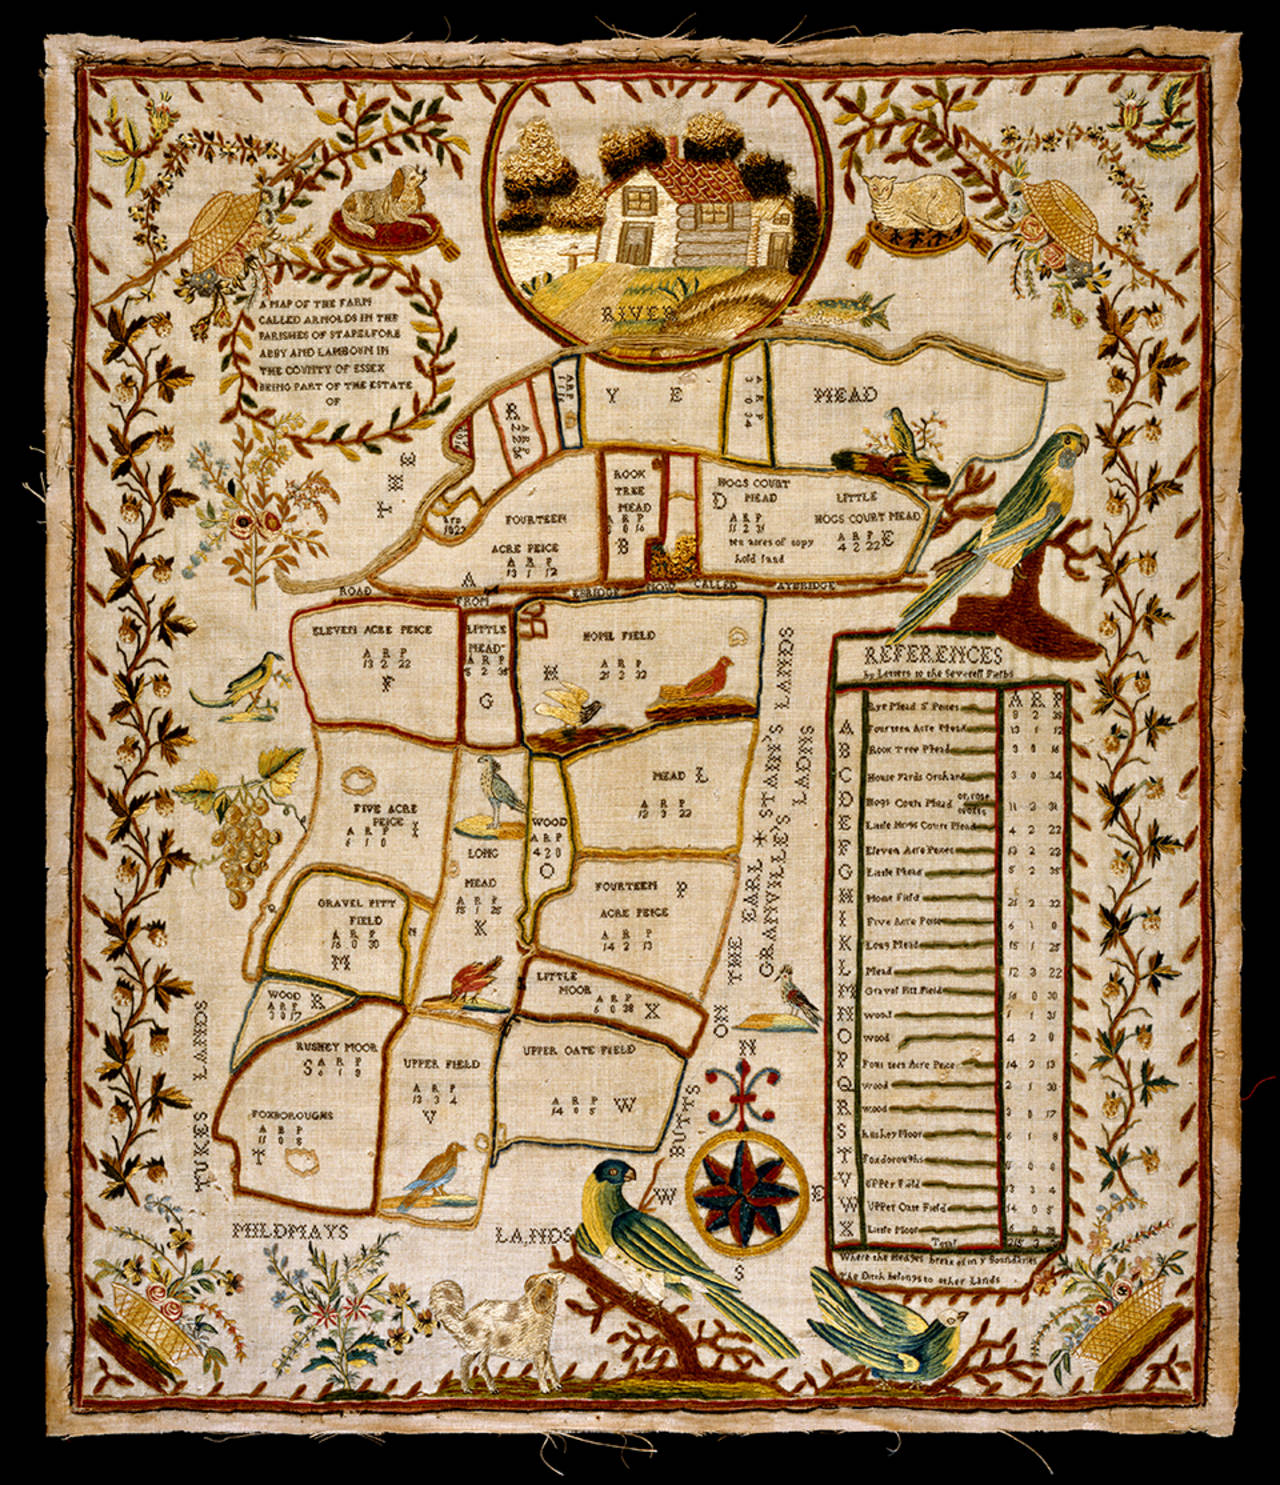 RIVER
A MAP OF THE FARM
CALLED ARNOLDS IN THE
PARISHES OF STAPELFORE
ABBY AND LAMBOURN IN
THE COUNTY OF ESSEX
BEING PART OF THE ESTATE
OF
THE
R
Y E
MEAD
A R P
A R P
3 0 34
ROOK
TREE
MEAD
A R P
3 0 16
B
HOGS COURT
D MEAD
A R P
11 2 31
ten acres of copy
hold land
LITTLE
HOGS COURT MEAD
A R P E
4 2 22
FOURTEEN
ACRE PEICE
A R P
13 1 12
A
ROAD FROM NOW CALLED AYBRIDGE
ELEVEN ACRE PEICE
A R P
13 2 22
F
LITTLE
MEAD
A R P
5 2 35
G
HOME FIELD
H
A R P
21 2 32
MEAD L
A R P
12 3 22
FIVE ACRE
PEICE I
A R P
6 1 0
WOOD
A R P
4 2 0
O
LONG
MEAD
A R P
15 1 25
K
FOURTEEN P
ACRE PEICE
A R P
14 2 13
GRAVEL PITT
FIELD
A R P
16 0 30
M
N
LITTLE
MOOR
A R P X
6 0 38
WOOD R
A R P
3 0 17
RUSHEY MOOR
S A R P
6 1 8
UPPER FIELD
A R P
13 3 4
V
UPPER OATE FIELD
A R P W
14 0 5
FOXBOROUGHS
A R P
11 0 8
T
TUKES LANDS
MILDMAYS LANDS
BUTTS ON THE EARL STAIN'S LANDS
GRANVILLE'S LADNS
N
W E
S
REFERENCES
by Letters to the Severell Fields
A R P
Rye Mead 5 Peices 9 2 38
A Fourteen Acre Mead 13 1 12
B Rook Tree Mead 3 0 16
C House Yards Orchard 3 0 34
D Hogs Court Mead 11 2 31
E Little Hogs Court Mead 4 2 22
F Eleven Acre Peices 13 2 22
G Little Mead 5 2 35
H Home Field 21 2 32
I Five Acre Peice 6 1 0
K Long Mead 15 1 25
L Mead 12 3 22
M Gravel Pitt Field 16 0 30
N Wood 1 1 31
O Wood 4 2 0
P Fourteen Acre Peice 14 2 13
Q Wood 2 1 30
R Wood 3 0 17
S Rushey Moor 6 1 8
T Foxboroughs 11 0 8
V Upper Field 13 3 4
W Upper Oate Field 14 0 5
X Little Moor 6 0 38
Total
Where the Hedges break of my Boundaries
The Ditch belongs to other Lands